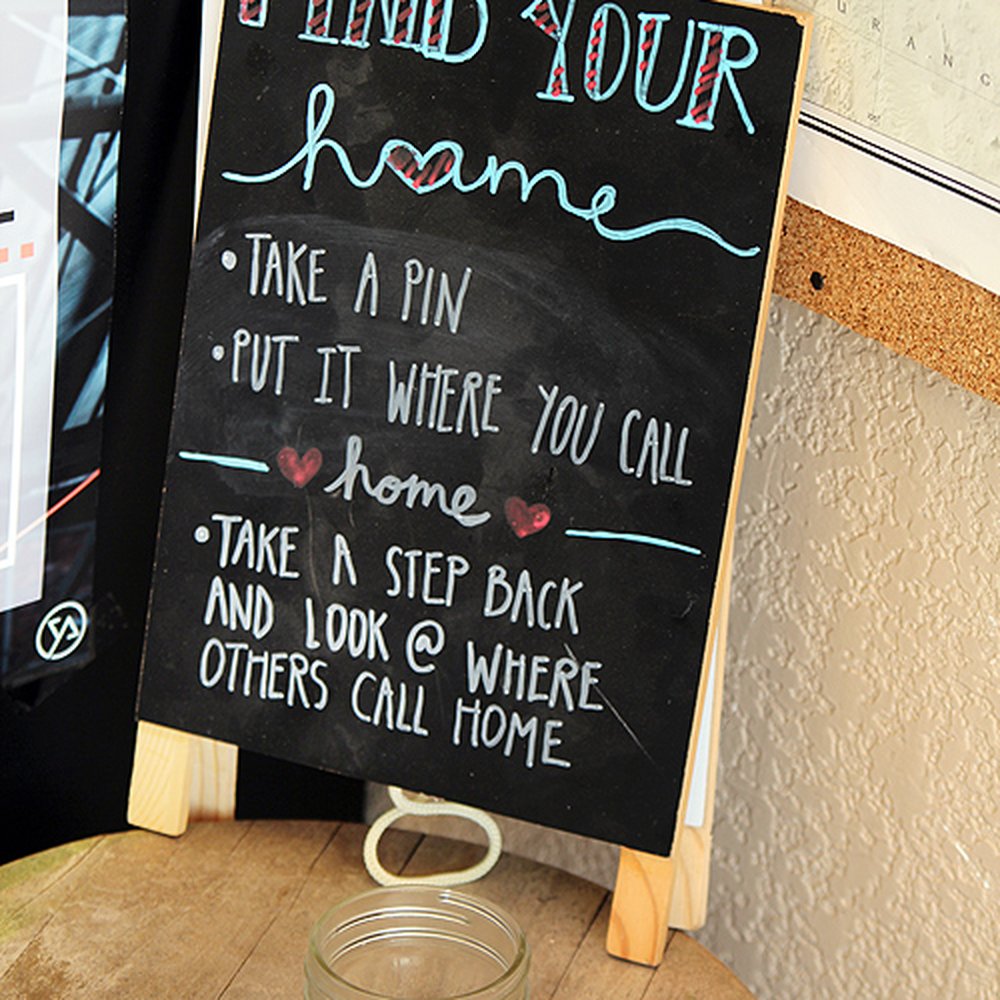 FIND YOUR
home
• TAKE A PIN
• PUT IT WHERE YOU CALL
home
• TAKE A STEP BACK
AND LOOK @ WHERE
OTHERS CALL HOME
U R A N G